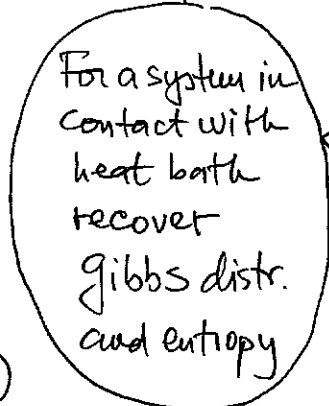 For a system in
contact with
heat bath
recover
gibbs distr.
and entropy